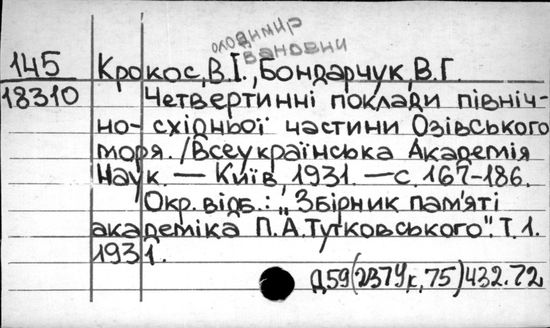 олодимир
вановни
145 Крокос, В.І., Бондарчук, В.Г.
18310 Четвертинні поклади північ-
но-східньої частини Озівського
моря. /Всеукраїнська Академія
Наук. — Київ, 1931. — с. 167-186.
Окр. відб.: „Збірник пам'яті
академіка П.А.Тутковського". Т.1.
1931.
Д59(237Ук,75)432.72